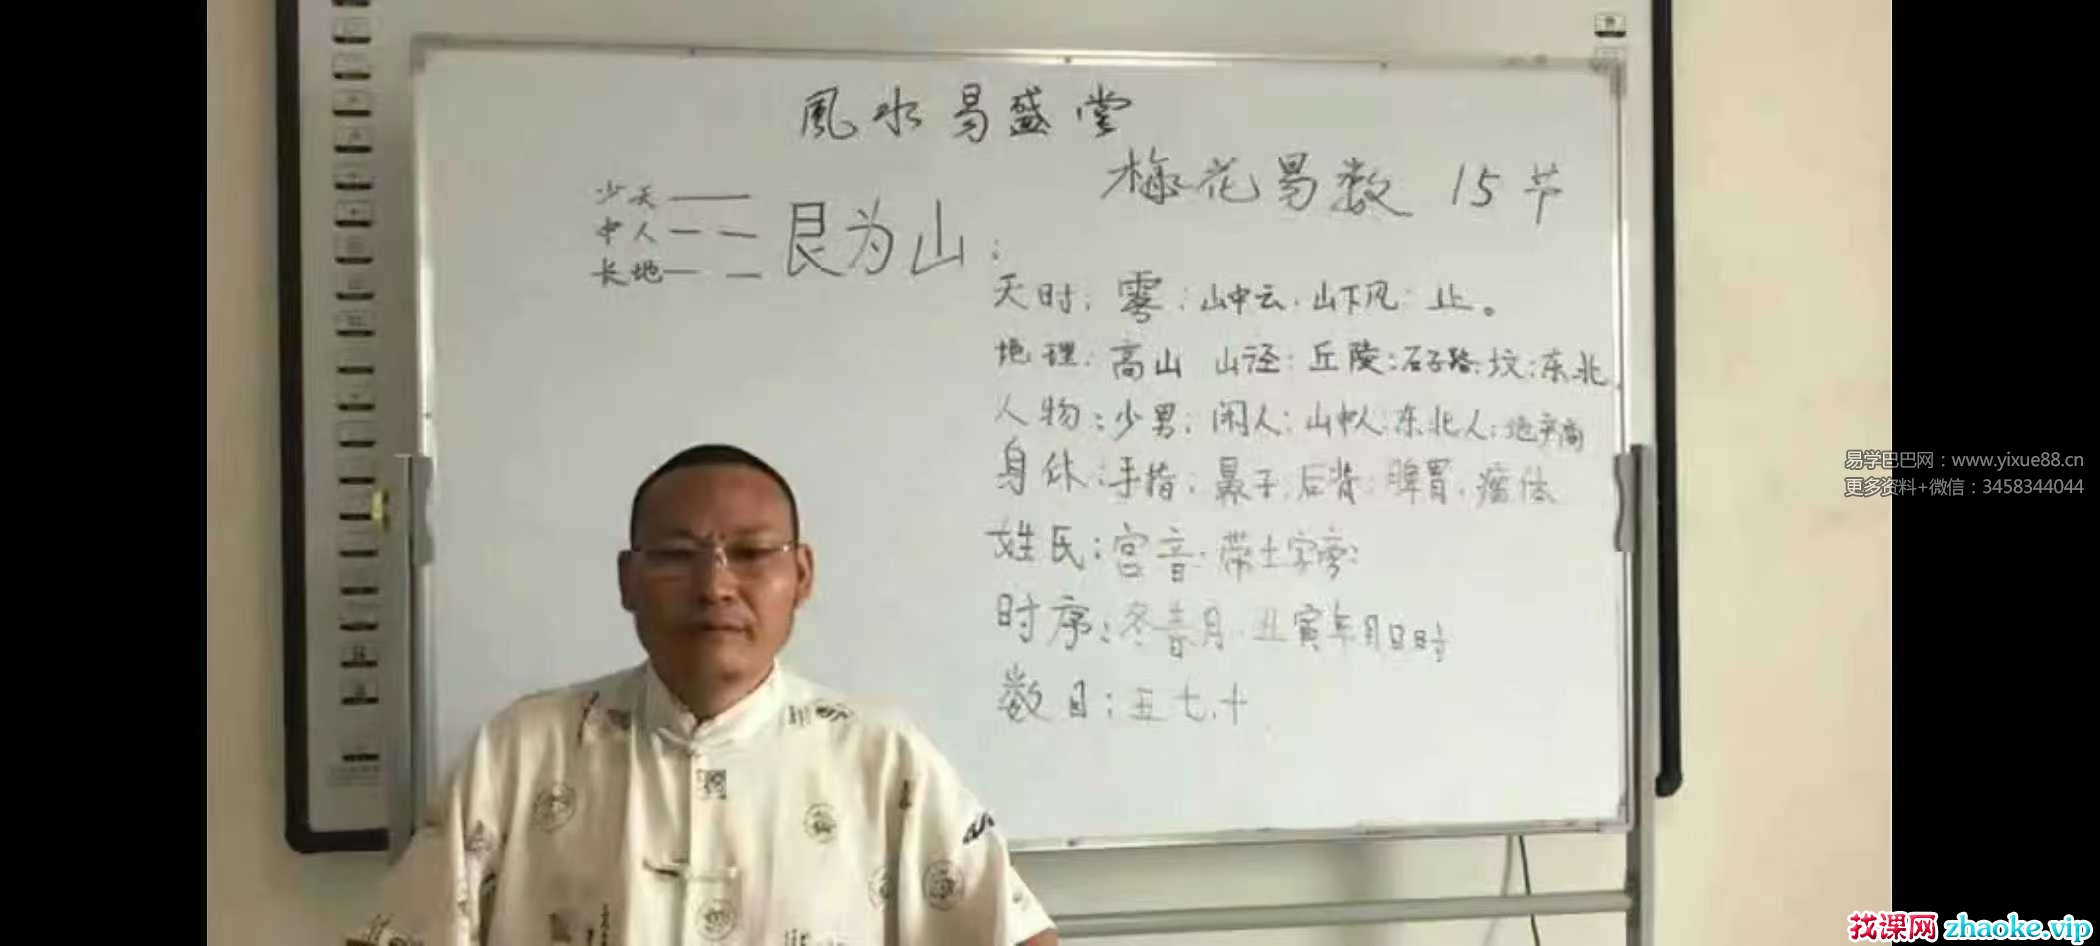 風水易盛堂
梅花易数 15节
少天
中人
长地
艮为山：
天时：雾：山中云．山下风：止。
地理：高山 山径：丘陵：石子路：坟：东北
人物：少男：闲人：山中人：东北人：地产商
身体：手指：鼻子：后背：脾胃．瘤体
姓氏：宫音．带土字旁：
时序：冬春月．丑寅年月日时
数目：五七．十
易学巴巴网：www.yixue88.cn
更多资料+微信：3458344044
找课网 zhaoke.vip